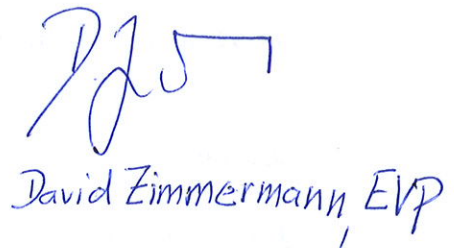 David Zimmermann, EVP